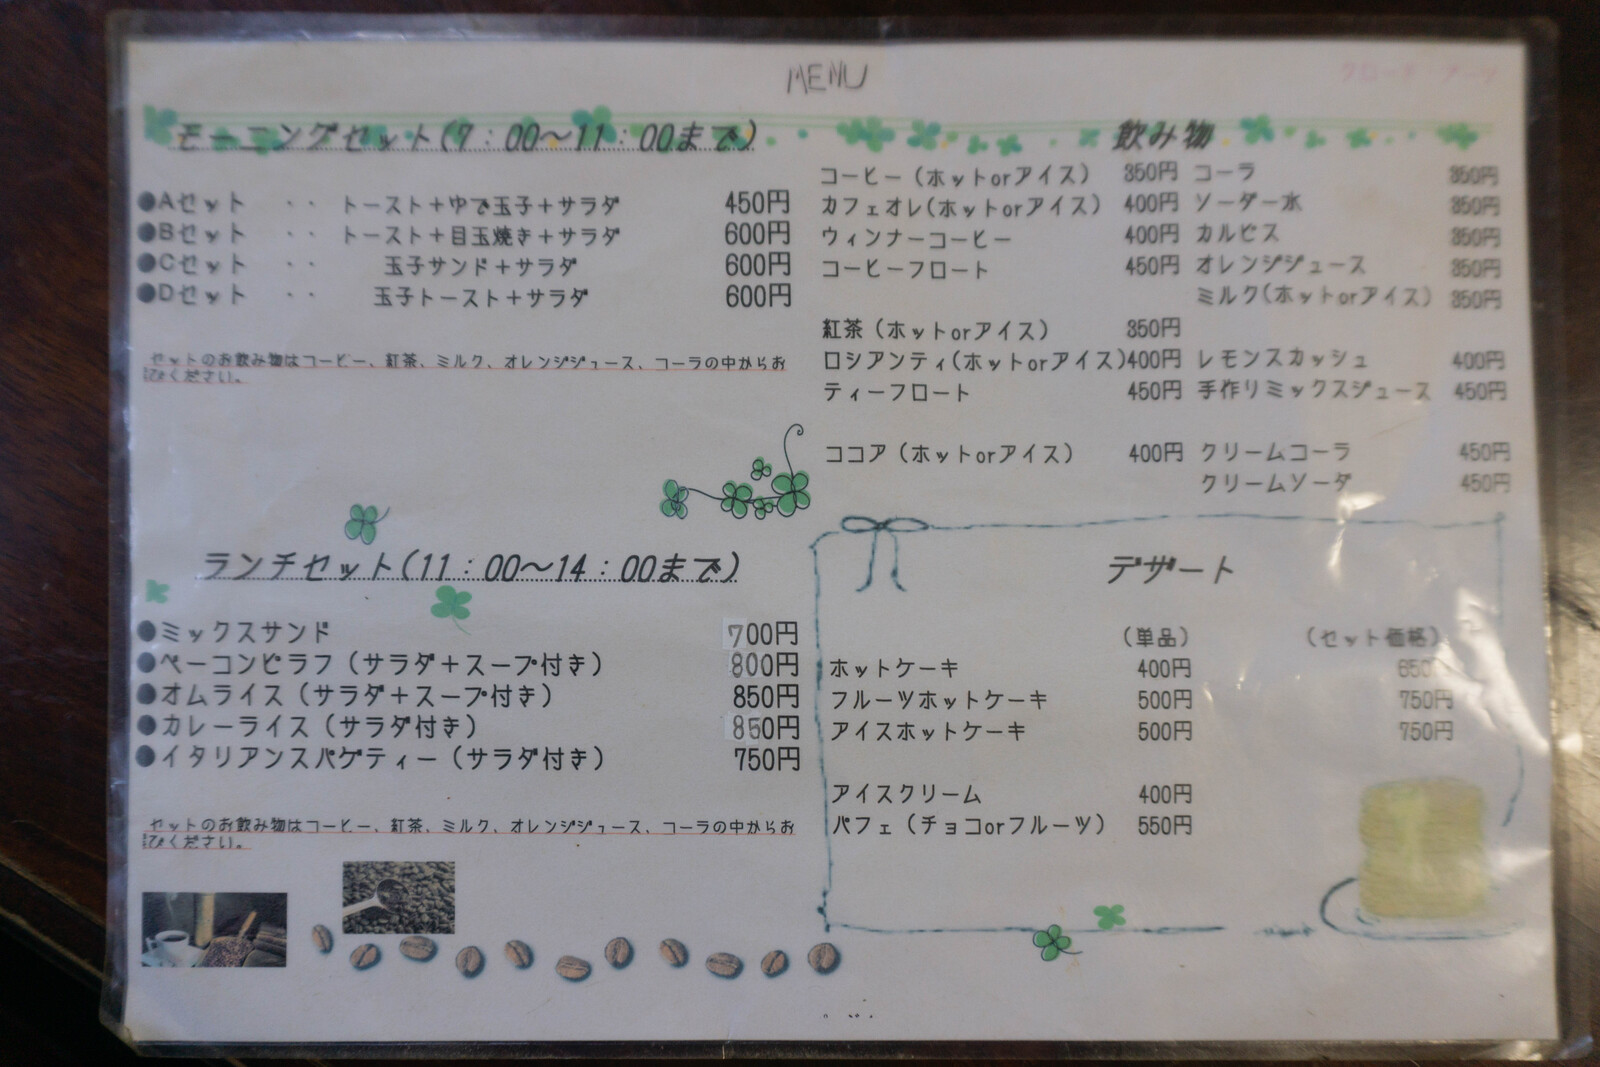 MENU
モーニングセット(7：00～11：00まで)
●Aセット ・・ トースト＋ゆで玉子＋サラダ 450円
●Bセット ・・ トースト＋目玉焼き＋サラダ 600円
●Cセット ・・ 玉子サンド＋サラダ 600円
●Dセット ・・ 玉子トースト＋サラダ 600円
セットのお飲み物はコーヒー、紅茶、ミルク、オレンジジュース、コーラの中からお
選びください。
ランチセット(11：00～14：00まで)
●ミックスサンド 700円
●ベーコンピラフ（サラダ＋スープ付き） 800円
●オムライス（サラダ＋スープ付き） 850円
●カレーライス（サラダ付き） 850円
●イタリアンスパゲティー（サラダ付き） 750円
セットのお飲み物はコーヒー、紅茶、ミルク、オレンジジュース、コーラの中からお
選びください。
飲み物
コーヒー（ホットorアイス） 350円 コーラ 350円
カフェオレ(ホットorアイス) 400円 ソーダー水 350円
ウィンナーコーヒー 400円 カルピス 350円
コーヒーフロート 450円 オレンジジュース 350円
ミルク(ホットorアイス) 350円
紅茶（ホットorアイス） 350円
ロシアンティ(ホットorアイス)400円 レモンスカッシュ 400円
ティーフロート 450円 手作りミックスジュース 450円
ココア（ホットorアイス） 400円 クリームコーラ 450円
クリームソーダ 450円
デザート
（単品） （セット価格）
ホットケーキ 400円 650
フルーツホットケーキ 500円 750円
アイスホットケーキ 500円 750円
アイスクリーム 400円
パフェ（チョコorフルーツ） 550円